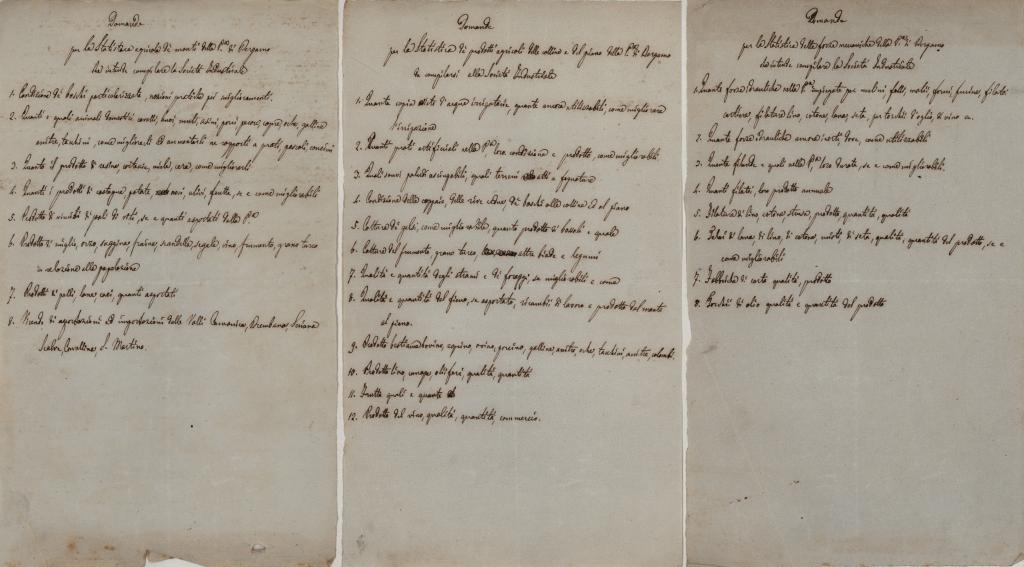 Domande
per la Statistica agricola di monti della P.cia di Bergamo
che intende compilare la Società Industriale
1. Condizione di boschi particolarizzata, nozioni pratiche pei miglioramenti.
2. Quanti e quali animali domestici cavalli, buoi, muli, asini, porci, pecore, capre, oche, galline
anitre, tacchini, come migliorarli ed aumentarli ne rapporti a prati, pascoli, concimi
3. Quanto il prodotto di casina, miele, cera, come migliorarli
4. Quanti i prodotti di castagne, patate, noci, ulivi, frutta, se e come migliorabili
5. Prodotto di di peli di se e quanti esportati dalla P.cia
6. Prodotto di miglio, orzo, saggina, fraina, segale, vino, frumento, grano turco
in relazione alla popolazione
7. Prodotti di pelli, lane, quanti esportati
8. di esportazioni ed importazioni delle Valli Camonica, Brembana, Seriana
Scalve, Cavallina, S. Martino.
Domande
per la Statistica di prodotti agricoli delle colline e del piano della P.cia di Bergamo
da compilarsi dalla Società Industriale
1. Quanta copia di acqua irrigatoria, quanta ancora utilizzabili, come migliorare
l'irrigazione
2. Quanti prati artificiali nella P.cia loro condizione e prodotto, come migliorabili
3. Quali sieno paludi asciugabili, quali terreni atti a fognatura
4. Condizione delle ceppaie, delle rive cedue, di boschi alla collina ed al piano
5. Coltura di gelsi, come migliorabile, quanto prodotto di bozzoli e quale
6. Coltura del frumento, grano turco, altre biade e legumi
7. Qualità e quantità degli strami e di foraggi, se migliorabili e come
8. Qualità e quantità del fieno, se esportato, ricambi di lavoro e prodotto del monte
al piano.
9. Prodotto bestiame bovino, equino, ovino, porcino, galline, anitre, oche, tacchini, anitre, colombi.
10. Prodotto lino, canape, oliferi, qualità, quantità
11. Frutta quali e quante
12. Prodotto del vino, qualità, quantità, commercio.
Domande
per la Statistica delle forze meccaniche della P.cia di Bergamo
che intende compilare la Società Industriale
1. Quante forze idrauliche nella P.cia impiegate per mulini, folli, magli, forni, fucine, filati
cotone, filatura lino, cotone, lana, seta, per torchi d'oglio, di vino ec.
2. Quante forze idrauliche ancora inerti, dove, come utilizzabili
3. Quante filande e quali nella P.cia, loro durata, se e come migliorabili.
4. Quanti filatoi, loro prodotto annuale
5. Filatura di lino, cotone, prodotto, quantità, qualità
6. Telai di lana, di lino, di cotone, misti, di seta, qualità, quantità del prodotto, se e
come migliorabili
7. Fabbriche di carta qualità, prodotto
8. Torchi di olio qualità e quantità del prodotto